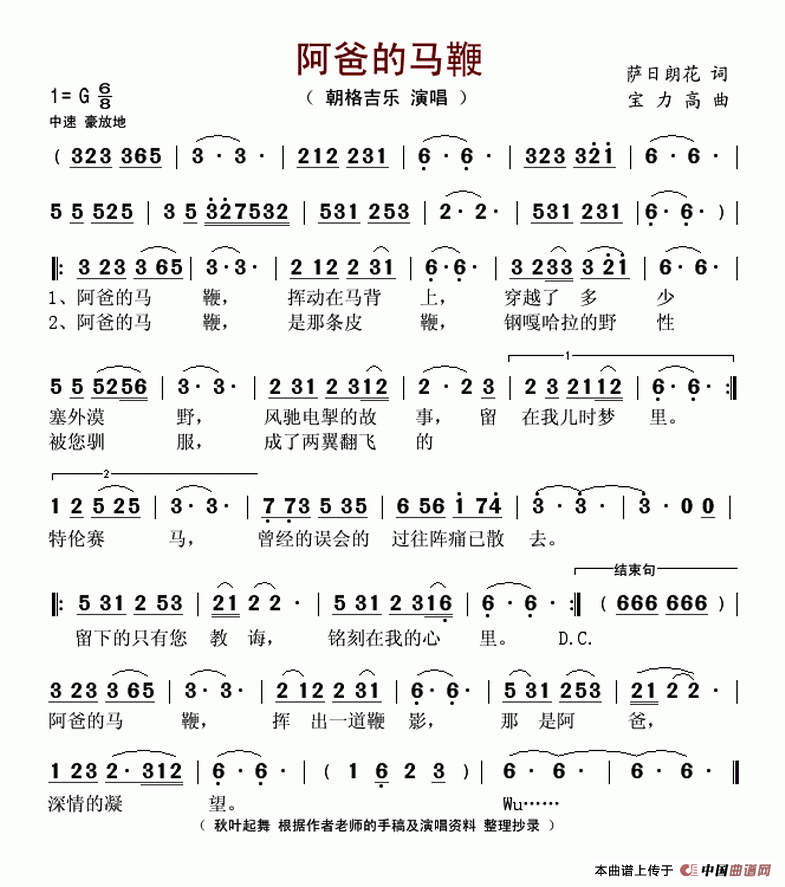 阿爸的马鞭
萨日朗花 词
1=G 6/8
（ 朝格吉乐 演唱 ）
宝 力 高 曲
中速 豪放地
( 323 365 | 3· 3· | 212 231 | 6· 6· | 323 321 | 6· 6· |
5 5 525 | 3 5 327532 | 531 253 | 2· 2· | 531 231 | 6· 6· ) |
‖: 3 23 3 65 | 3· 3· | 2 12 2 31 | 6· 6· | 3 233 3 21 | 6· 6· |
1、阿爸的马 鞭， 挥动在马背 上， 穿越了 多 少
2、阿爸的马 鞭， 是那条皮 鞭， 钢嘎哈拉的野 性
1
5 5 5256 | 3· 3· | 2 31 2 312 | 2· 2 3 | 2 3 2112 | 6· 6· :‖
塞外漠 野， 风驰电掣的故 事， 留 在我儿时梦 里。
被您驯 服， 成了两翼翻飞 的
2
1 2 5 25 | 3· 3· | 7 73 5 35 | 6 56 1 74 | 3· 3· | 3· 0 0 |
特伦赛 马， 曾经的误会的 过往阵痛已散 去。
结束句
‖: 5 31 2 53 | 21 2 2· | 5 31 2 316 | 6· 6· :‖ ( 666 666 ) |
留下的只有您 教 诲， 铭刻在我的心 里。 D.C.
3 23 3 65 | 3· 3· | 2 12 2 31 | 6· 6· | 5 31 253 | 21 2 2 |
阿爸的马 鞭， 挥 出一道鞭 影， 那 是阿 爸，
1 23 2· 312 | 6· 6· | ( 1 6 2 3 ) | 6· 6· | 6· 6· ‖
深情的凝 望。 Wu……
（ 秋叶起舞 根据作者老师的手稿及演唱资料 整理抄录 ）
本曲谱上传于 中国曲谱网